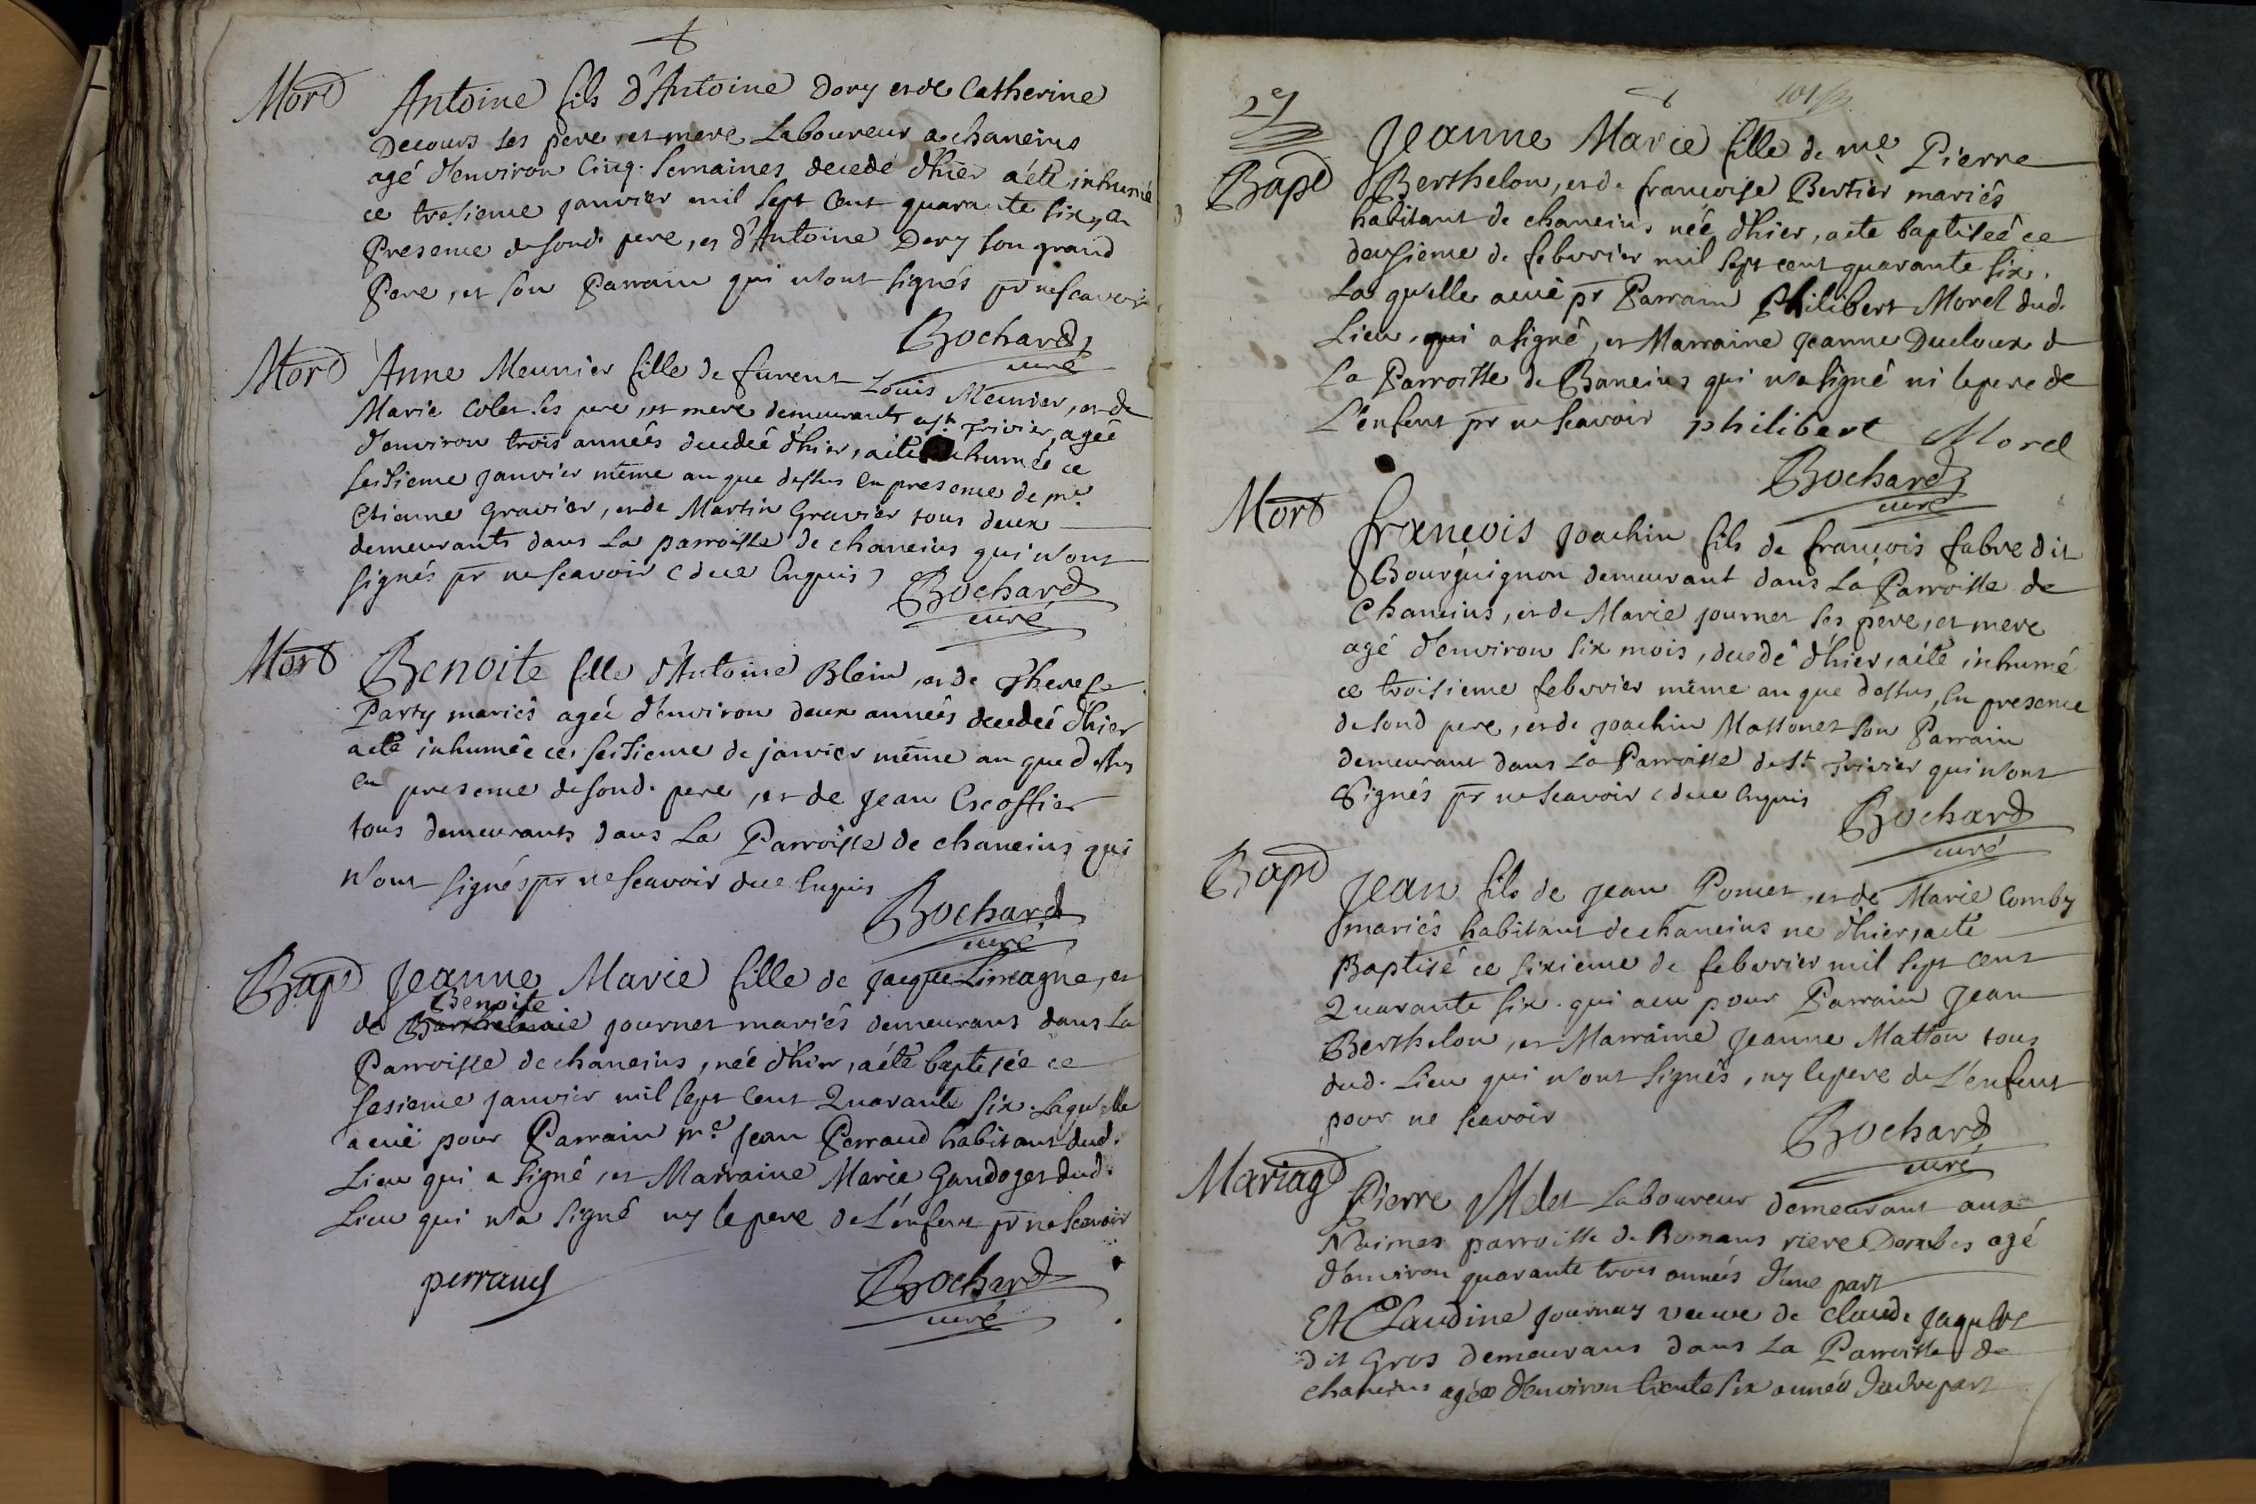 Mort Antoine fils d'Antoine Dory et de Catherine
Decours ses pere, et mere Laboureur a chaneins
agé d'environ Cinq Semaines decedé d'hier a été inhumé
ce tresieme janvier mil sept Cent quarante six, en
Presence de sond. pere, et d'Antoine Dory son grand
Pere, et son Parrain qui n'ont signés pr ne scavoir
Bochard
curé
Mort Anne Meunier fille de furent Louis Meunier, et de
Marie Colet ses pere, et mere demeurants a St Trivier, agée
d'environ trois années decedeé d'hier, a été inhumée ce
seisieme janvier même an que dessus en presence de me
Etienne Gravier, et de Martin Gravier tous deux
demeurants dans La parroisse de chaneins qui n'ont
signés pr ne scavoir de ce Enquis
Bochard
curé
Mort Benoite fille d'Antoine Blein, et de Therese
Party mariés agée d'environ deux années decedeé d'hier
a été inhumêe ce seisieme de janvier même an que dessus
en presence de sond. pere, et de Jean Escoffier
tous demeurants dans La Parroisse de chaneins qui
N'ont signés pr ne scavoir de ce Enquis
Bochard
curé
Bapt Jeanne Marie fille de jacque Limagne, et
Benoite
de Barthelmie journet mariés demeurans dans La
Parroisse de chaneins, née d'hier, a été baptisée ce
sesieme janvier mil sept Cent Quarante six. Laquelle
a euë pour Parrain me Jean Perraud habitant dud.
Lieu qui a signé, et Marraine Marie Gandoger dud.
Lieu qui n'a signé ny le pere de L'enfent pr ne scavoir
perraud
Bochard
curé
27
Bapt Jeanne Marie fille de me Pierre
Berthelon, et de françoise Bertier mariés
habitant de chaneins née d'hier, a été baptiseé ce
deusieme de febvrier mil sept cent quarante six.
La quelle a euë pr Parrain Philibert Morel dud.
Lieu, qui a signé, et Marraine Jeanne Ducloux d
La Parroisse de Baneins qui n'a signé ni le pere de
L'enfent pr ne scavoir philibert Morel
Bochard
curé
Mort françois joachin fils de françois fabre dit
Bourguignon demeurant dans La Parroisse de
Chaneins, et de Marie journet ses pere, et mere
agé d'environ six mois, decedé d'hier, a été inhumé
ce troisieme febvrier même an que dessus, En presence
de sond pere, et de joachin Massonet son Parrain
demeurant dans La Parroisse de St Trivier qui n'ont
Signés pr ne scavoir de ce enquis
Bochard
curé
Bapt Jean fils de Jean Pomet, et de Marie Comby
mariés habitant de chaneins ne d'hier, a été
Baptisé ce sixieme de febvrier mil sept cent
Quarante six. qui a eu pour Parrain Jean
Berthelon, et Marraine Jeanne Matton tous
dud. Lieu qui n'ont signés, ny le pere de L'enfent
pour ne scavoir
Bochard
curé
Mariage Pierre Melet Laboureur demeurant aux
Naimes parroisse de Romans riere Dombes agé
d'environ quarante trois années d'une part
Et Claudine journay veuve de claude
dit Gros demeurans dans La Parroisse de
chaneins agée d'environ trente six années d'autre part